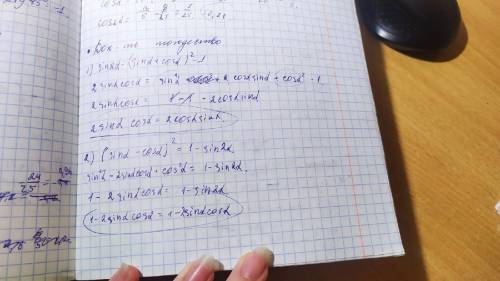 cosα =
cos2α =
• Док-ть тождество
1) sin2α = (sinα + cosα)² - 1
2 sinα cosα = sin²α + 2 cosα sinα + cos²α - 1
2 sinα cosα = 1 - 1 - 2 cosα sinα
2 sinα cosα = 2 cosα sinα
2) (sinα - cosα)² = 1 - sin2α
sin²α - 2 sinα cosα + cos²α = 1 - sin2α.
1 - 2 sinα cosα = 1 - sin2α
1 - 2 sinα cosα = 1 - 2 sinα cosα
24
25